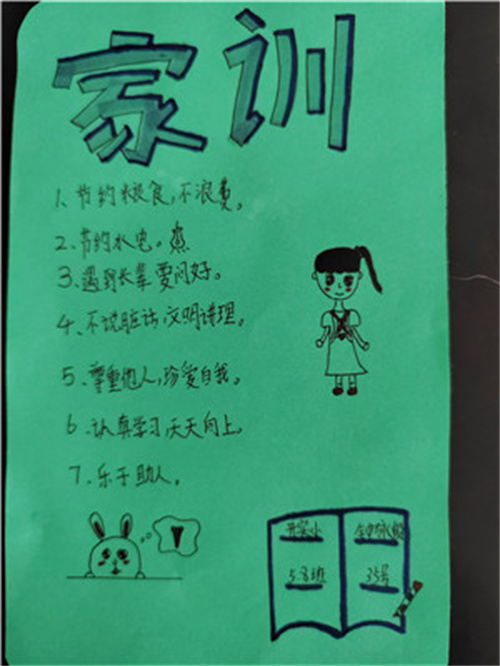 家训
1、节约粮食,不浪费。
2、节约水电。
3、遇到长辈要问好。
4、不说脏话,文明讲理。
5、尊重他人,珍爱自我。
6、认真学习,天天向上。
7、乐于助人。
开实小
5.8班
35号